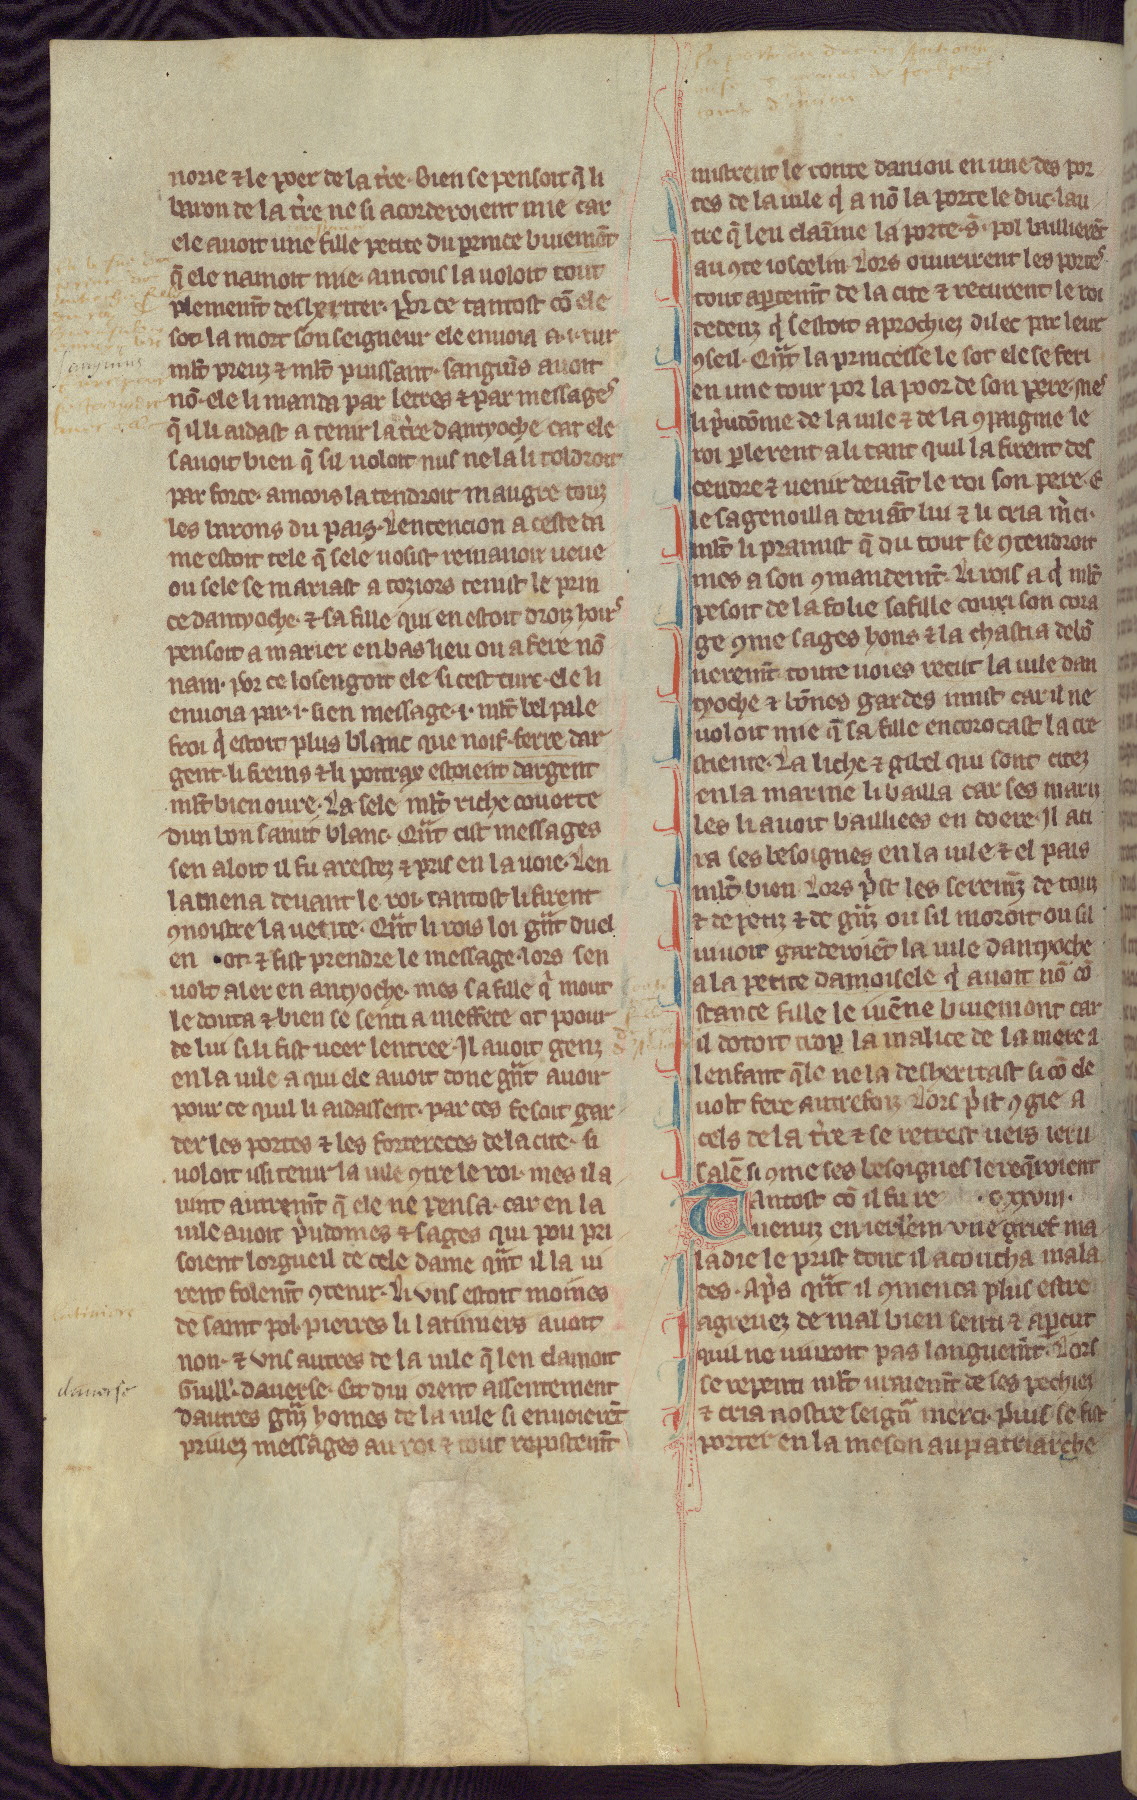 norie ⁊ le poer de la t're. Bien se pensoit q̃ li
baron de la t're ne si acorderoient mie car
ele auoit une fille petite du prince buiemõt
q̃ ele namoit mie. aincois la uoloit tout
plement̃ desheriter. Por ce tantost cõ ele
sot la mort son seigneur ele enuoia a .i. tur
mlt̃ preuz ⁊ mlt̃ puissant. sanguis auoit
nõ. ele li manda par letres ⁊ par messages
q̃ il li aidast a tenir la t're dantyoche car ele
sauoit bien q̃ sil uoloit nus ne la li toldroit
par force. aincois la tendroit maugre touz
les barons du pais. Lentencion a ceste da
me estoit tele q̃ sele uosist remanoir ueue
ou sele se mariast a toziors tenist le prin
ce dantyoche. ⁊ sa fille qui en estoit droiz hoirs
pensoit a marier en bas lieu ou a fere nõ
nain. por ce losengoit ele si cest turc. ele li
enuoia par .i. sien message .i. mlt̃ bel pale
froi q̃ estoit plus blanc que noif. ferre dar
gent. li freins ⁊ li poitrax estoient dargent
mlt̃ bien oure. La sele mlt̃ riche couuerte
dun bon samit blanc. Qũt cist messages
sen aloit il fu arestez ⁊ pris en la uoie. Len
lamena deuant le roi. tantost li firent
ꝯnoistre la uerite. Qũt li rois loi gr̃t duel
en ot. ⁊ fist prendre le message. lors sen
uolt aler en antyoche. mes sa fille q̃ mout
le douta ⁊ bien se senti a meffete ot poour
de lui si li fist ueer lentree. Il auoit genz
en la uile a qui ele auoit done gr̃t auoir
pour ce quil li aidassent. par ces fesoit gar
der les portes ⁊ les forterecces de la cite. si
uoloit issi tenir la uile ꝯtre le roi. mes il a
uint autremt̃ q̃ ele ne pensa. car en la
uile auoit p̃udomes ⁊ sages qui pou pri
soient lorgueil de cele dame qũt il la ui
rent folemt̃ ꝯtenir. Li vns estoit moines
de saint pol. pierres li latiniers auoit
non. ⁊ vns autres de la uile q̃ len clamoit
Guill'. dauerse. Cit dui orent assentement
dautres gr̃z homes de la uile si enuoierẽt
priuez messages au roi ⁊ tout repostemt̃
mistrent le conte daniou en une des por
tes de la uile q̃ a nõ la porte le duc. lau
tre q̃ leu claĩme la porte .s. pol baillierẽt
au ꝯte ioscelin. Lors ouurirent les portes
tout apertemt̃ de la cite ⁊ recurent le roi
dedenz q̃ sestoit aprochiez dilec par leur
ꝯseil. Qũt la princesse le sot ele se feri
en une tour por la poor de son pere. mes
li p̃udõme de la uile ⁊ de la ꝯpaignie le
roi plerent a li tant quil la firent des
cendre ⁊ uenir deuãt le roi son pere. E
le sagenoilla deuãt lui ⁊ li cria m'ci.
mlt̃ li pramist q̃ du tout se ꝯtendroit
mes a son ꝯmandemt̃. Li rois a q̃ mlt̃
pesoit de la folie sa fille courri son cora
ge ꝯme sages hons ⁊ la chastia debõ
neremt̃. toute uoies recut la uile dan
tyoche ⁊ bõnes gardes mist car il ne
uoloit mie q̃ sa fille encorocast la cre
stiente. La liche ⁊ gibel qui sont citez
en la marine li bailla car ses mariz
les li auoit baillees en doere. Il ati
ra ses besoignes en la uile ⁊ el pais
mlt̃ bien. Lors p̃st les seremz de touz
⁊ de petiz ⁊ de gr̃z ou sil moroit ou sil
uiuoit garderoiẽt la uile dantyoche
a la petite damoisele q̃ auoit nõ cõ
stance fille le iuẽne buiemont car
il dotoit trop la malice de la mere a
lenfant q̃le ne la desheritast si cõ ele
uolt fere autrefoiz. Lors p̃st ꝯgie a
cels de la t're ⁊ se retrest uers ieru
salẽ si ꝯme ses besoignes le req̃roient
Tantost cõ il fu re .cxxviii.
uenuz en ierl'em vne grief ma
ladie le prist donc il acoucha mala
des. Ap's qũt il ꝯmenca plus estre
agreuez de mal bien senti ⁊ apercut
quil ne uiuroit pas longuemt̃. Lors
se repenti mlt̃ uraiemt̃ de ses pechiez
⁊ cria nostre seign̄r merci. puis se fist
porter en la meson au patriarche
sanguins
latiniere
dauerse